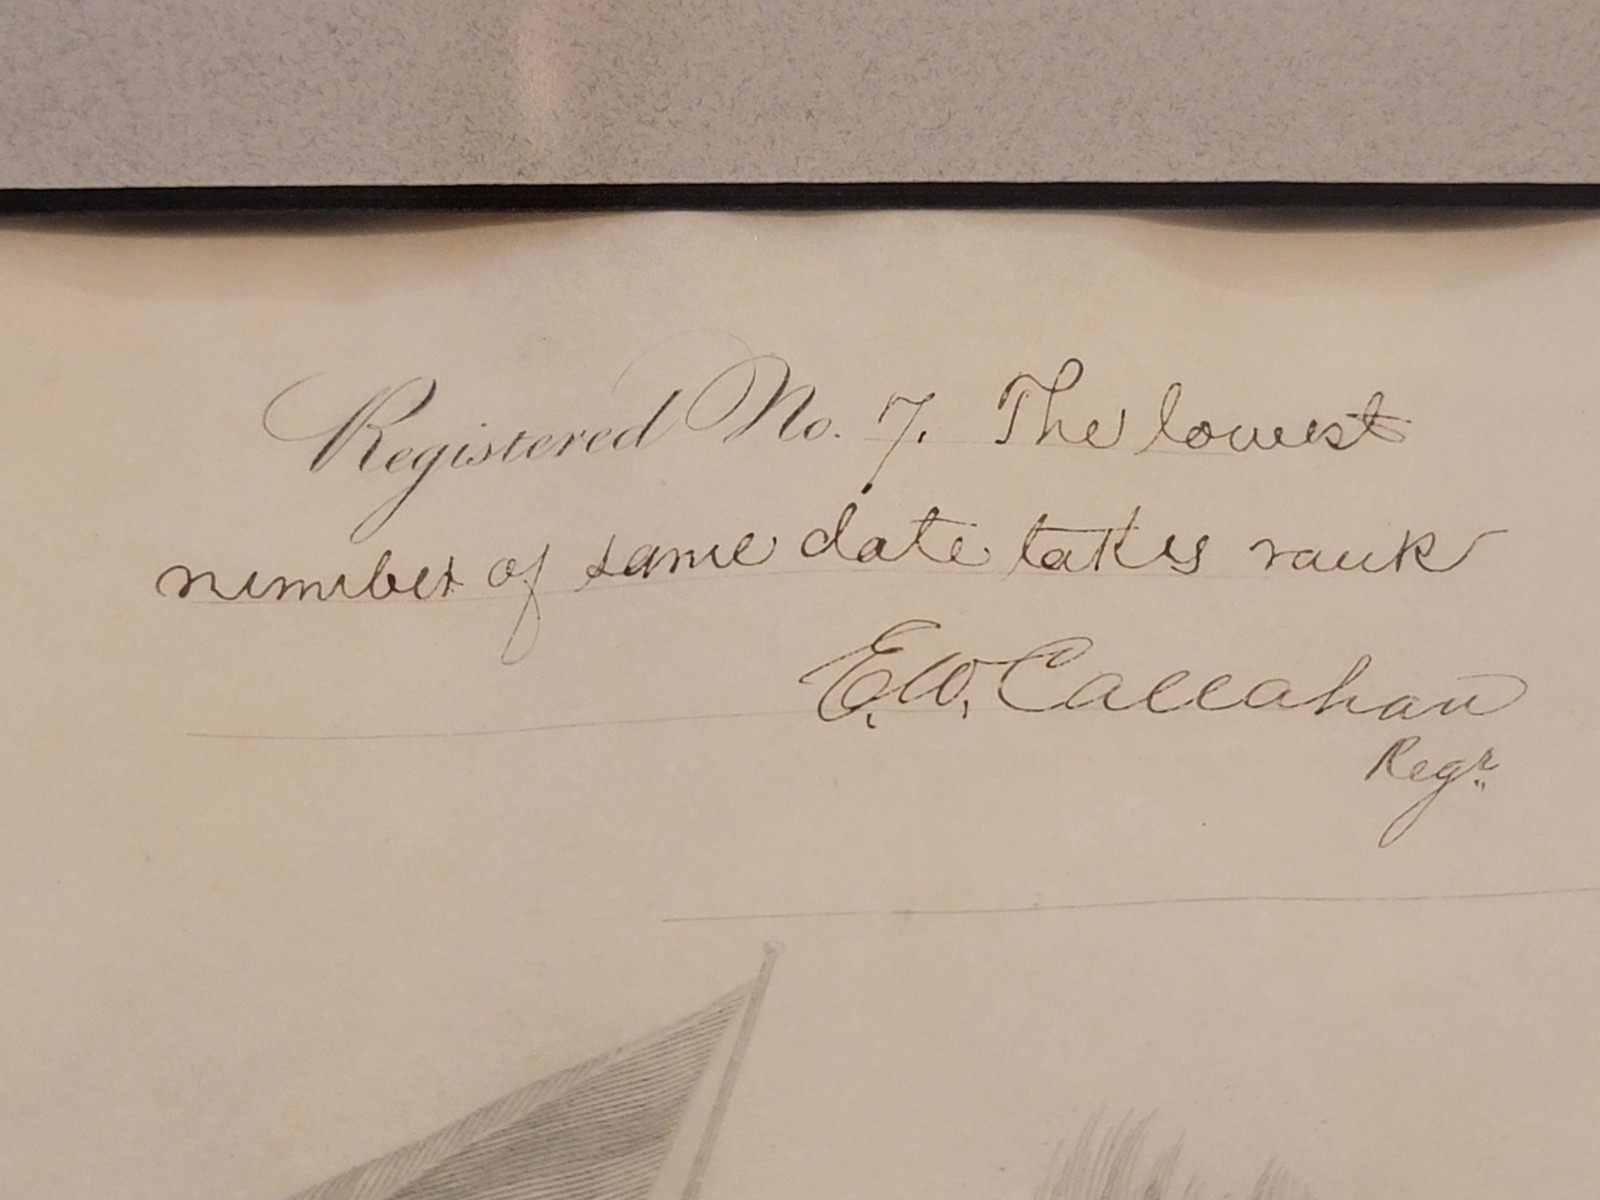 Registered No. 7. The lowest
number of same date takes rank
E. W. Callahan
Regr.